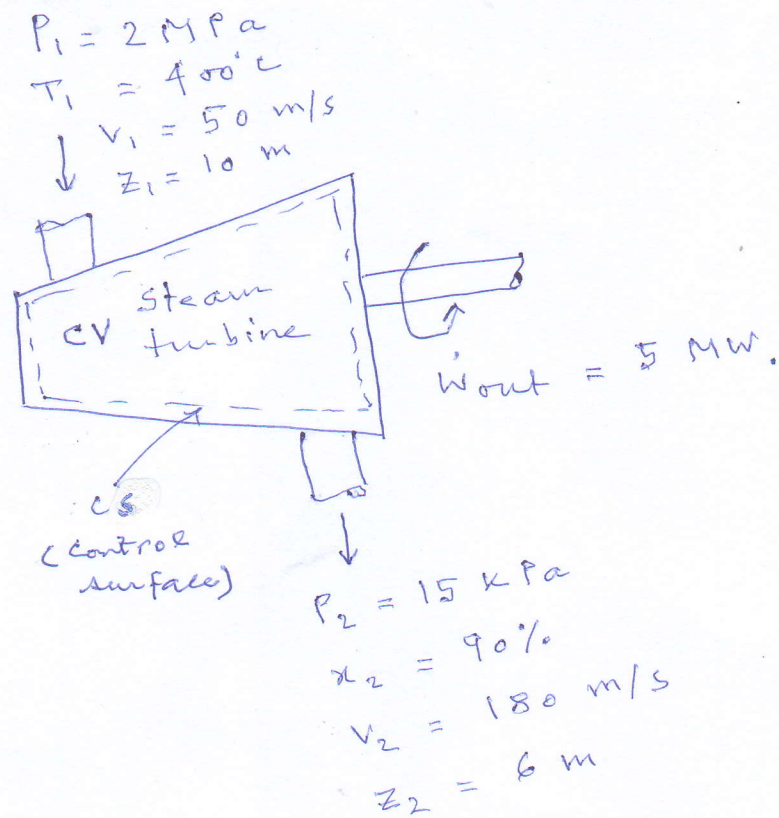 P₁ = 2 MPa
T₁ = 400°C
V₁ = 50 m/s
Z₁ = 10 m
Steam
CV turbine
Ẇout = 5 MW.
CS
(Control
surface)
P₂ = 15 KPa
x₂ = 90%
V₂ = 180 m/s
Z₂ = 6 m